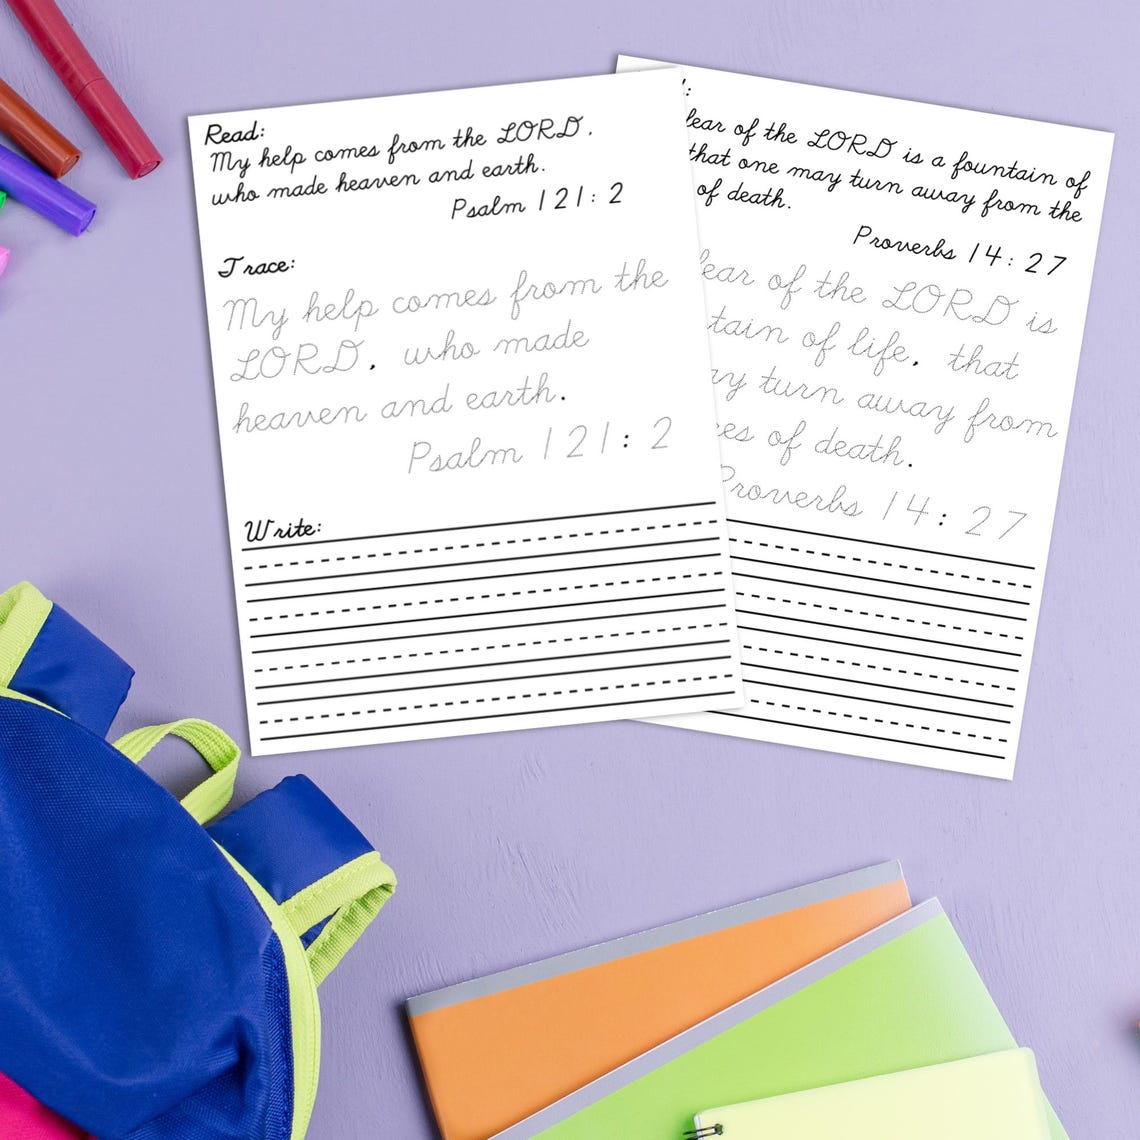 Read:
My help comes from the LORD.
who made heaven and earth.
Psalm 121:2
Trace:
My help comes from the
LORD, who made
heaven and earth.
Psalm 121:2
Write:
of the LORD is a fountain of
that one may turn away from the
of death.
Proverbs 14:27
of the LORD is
of life, that
turn away from
of death.
Proverbs 14:27